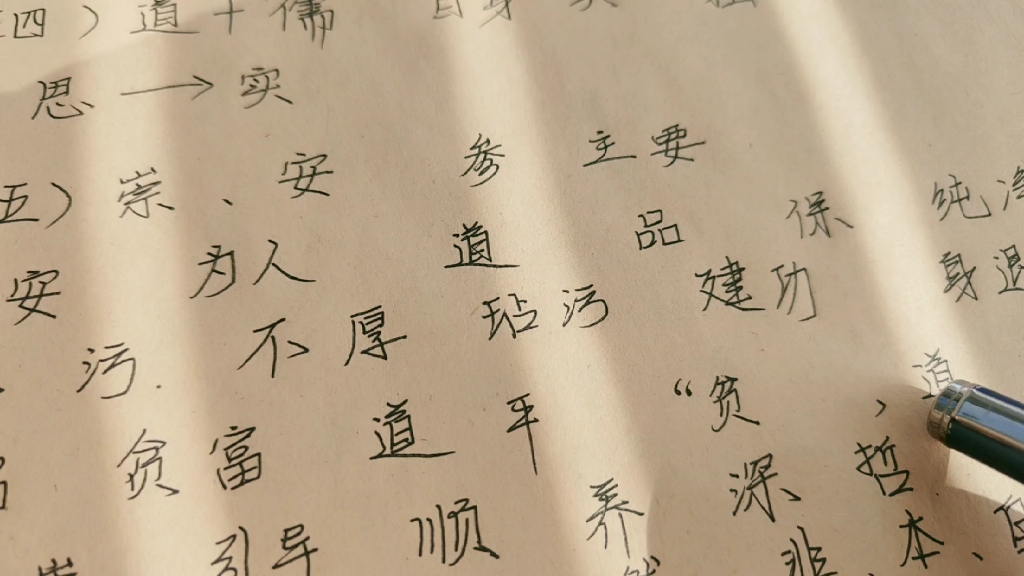 四）道十儒 自身
思→实
五）崇、安 参 主要
安 为人 道 品 保 纯净
污. 不厚 玷污 建功 身退
贪富 道平 “贫 ，道
引导 顺 养 深 哲
非 本、